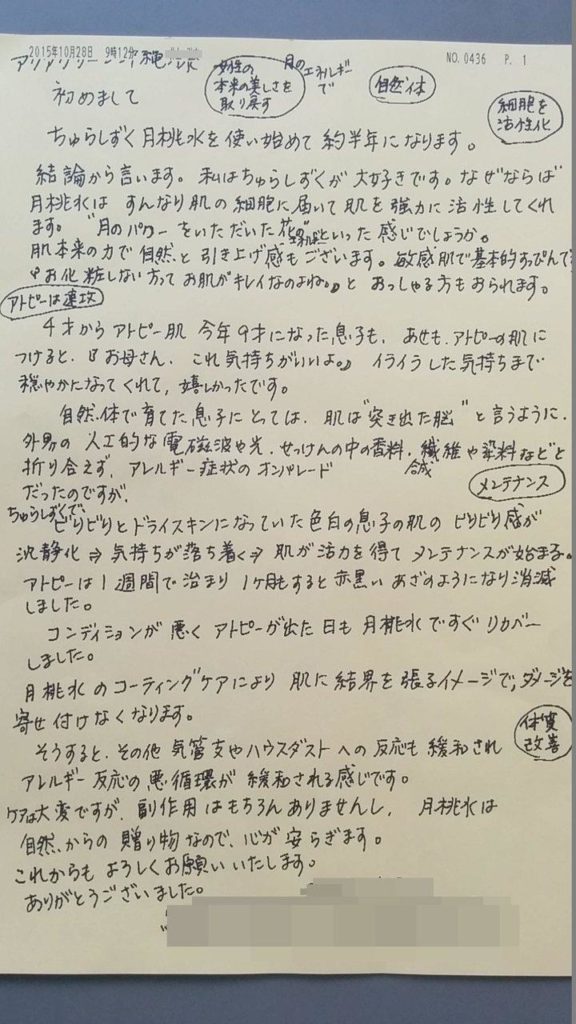 2015年10月28日 9時12分
NO.0436 P. 1
女性の
本来の美しさを
取り戻す
月のエネルギー
で
自然体
細胞を
活性化
初めまして
ちゅらしずく月桃水を使い始めて約半年になります。
結論から言います。私はちゅらしずくが大好きです。なぜならば
月桃水は すんなり肌の細胞に届いて肌を強力に活性してくれ
ます。"月のパワーをいただいた花の
といった感じでしょうか。
肌本来の力で自然と引き上げ感もございます。敏感肌で基本的すっぴんで
『お化粧しない方ってお肌がキレイなのよね。』と おっしゃる方もおられます。
アトピーは速攻
4才からアトピー肌 今年9才になった息子も、あせも、アトピーの肌に
つけると、『お母さん、これ気持ちがいいよ。』 イライラした気持ちまで
穏やかになってくれて、嬉しかったです。
自然体で育てた息子にとっては、肌は"突き出た脳"と言うように、
外界の人工的な電磁波や光、せっけんの中の香料、繊維や染料などと
合成
折り合えず、アレルギー症状のオンパレード
だったのですが、
メンテナンス
ちゅらしずくで、
ビリビリとドライスキンになっていた色白の息子の肌のビリビリ感が
沈静化⇒気持ちが落ち着く⇒肌が活力を得てメンテナンスが始まる。
アトピーは1週間で治まり 1ヶ月もすると赤黒いあざのようになり消滅
しました。
コンディションが悪くアトピーが出た日も月桃水ですぐリカバー
しました。
月桃水のコーティングケアにより 肌に結界を張るイメージで、ダメージを
寄せ付けなくなります。
体質
改善
そうすると、その他 気管支やハウスダストへの反応も緩和され
アレルギー反応の悪循環が緩和される感じです。
ケアは大変ですが、副作用はもちろんありませんし、月桃水は
自然からの贈り物なので、心が安らぎます。
これからもよろしくお願いいたします。
ありがとうございました。